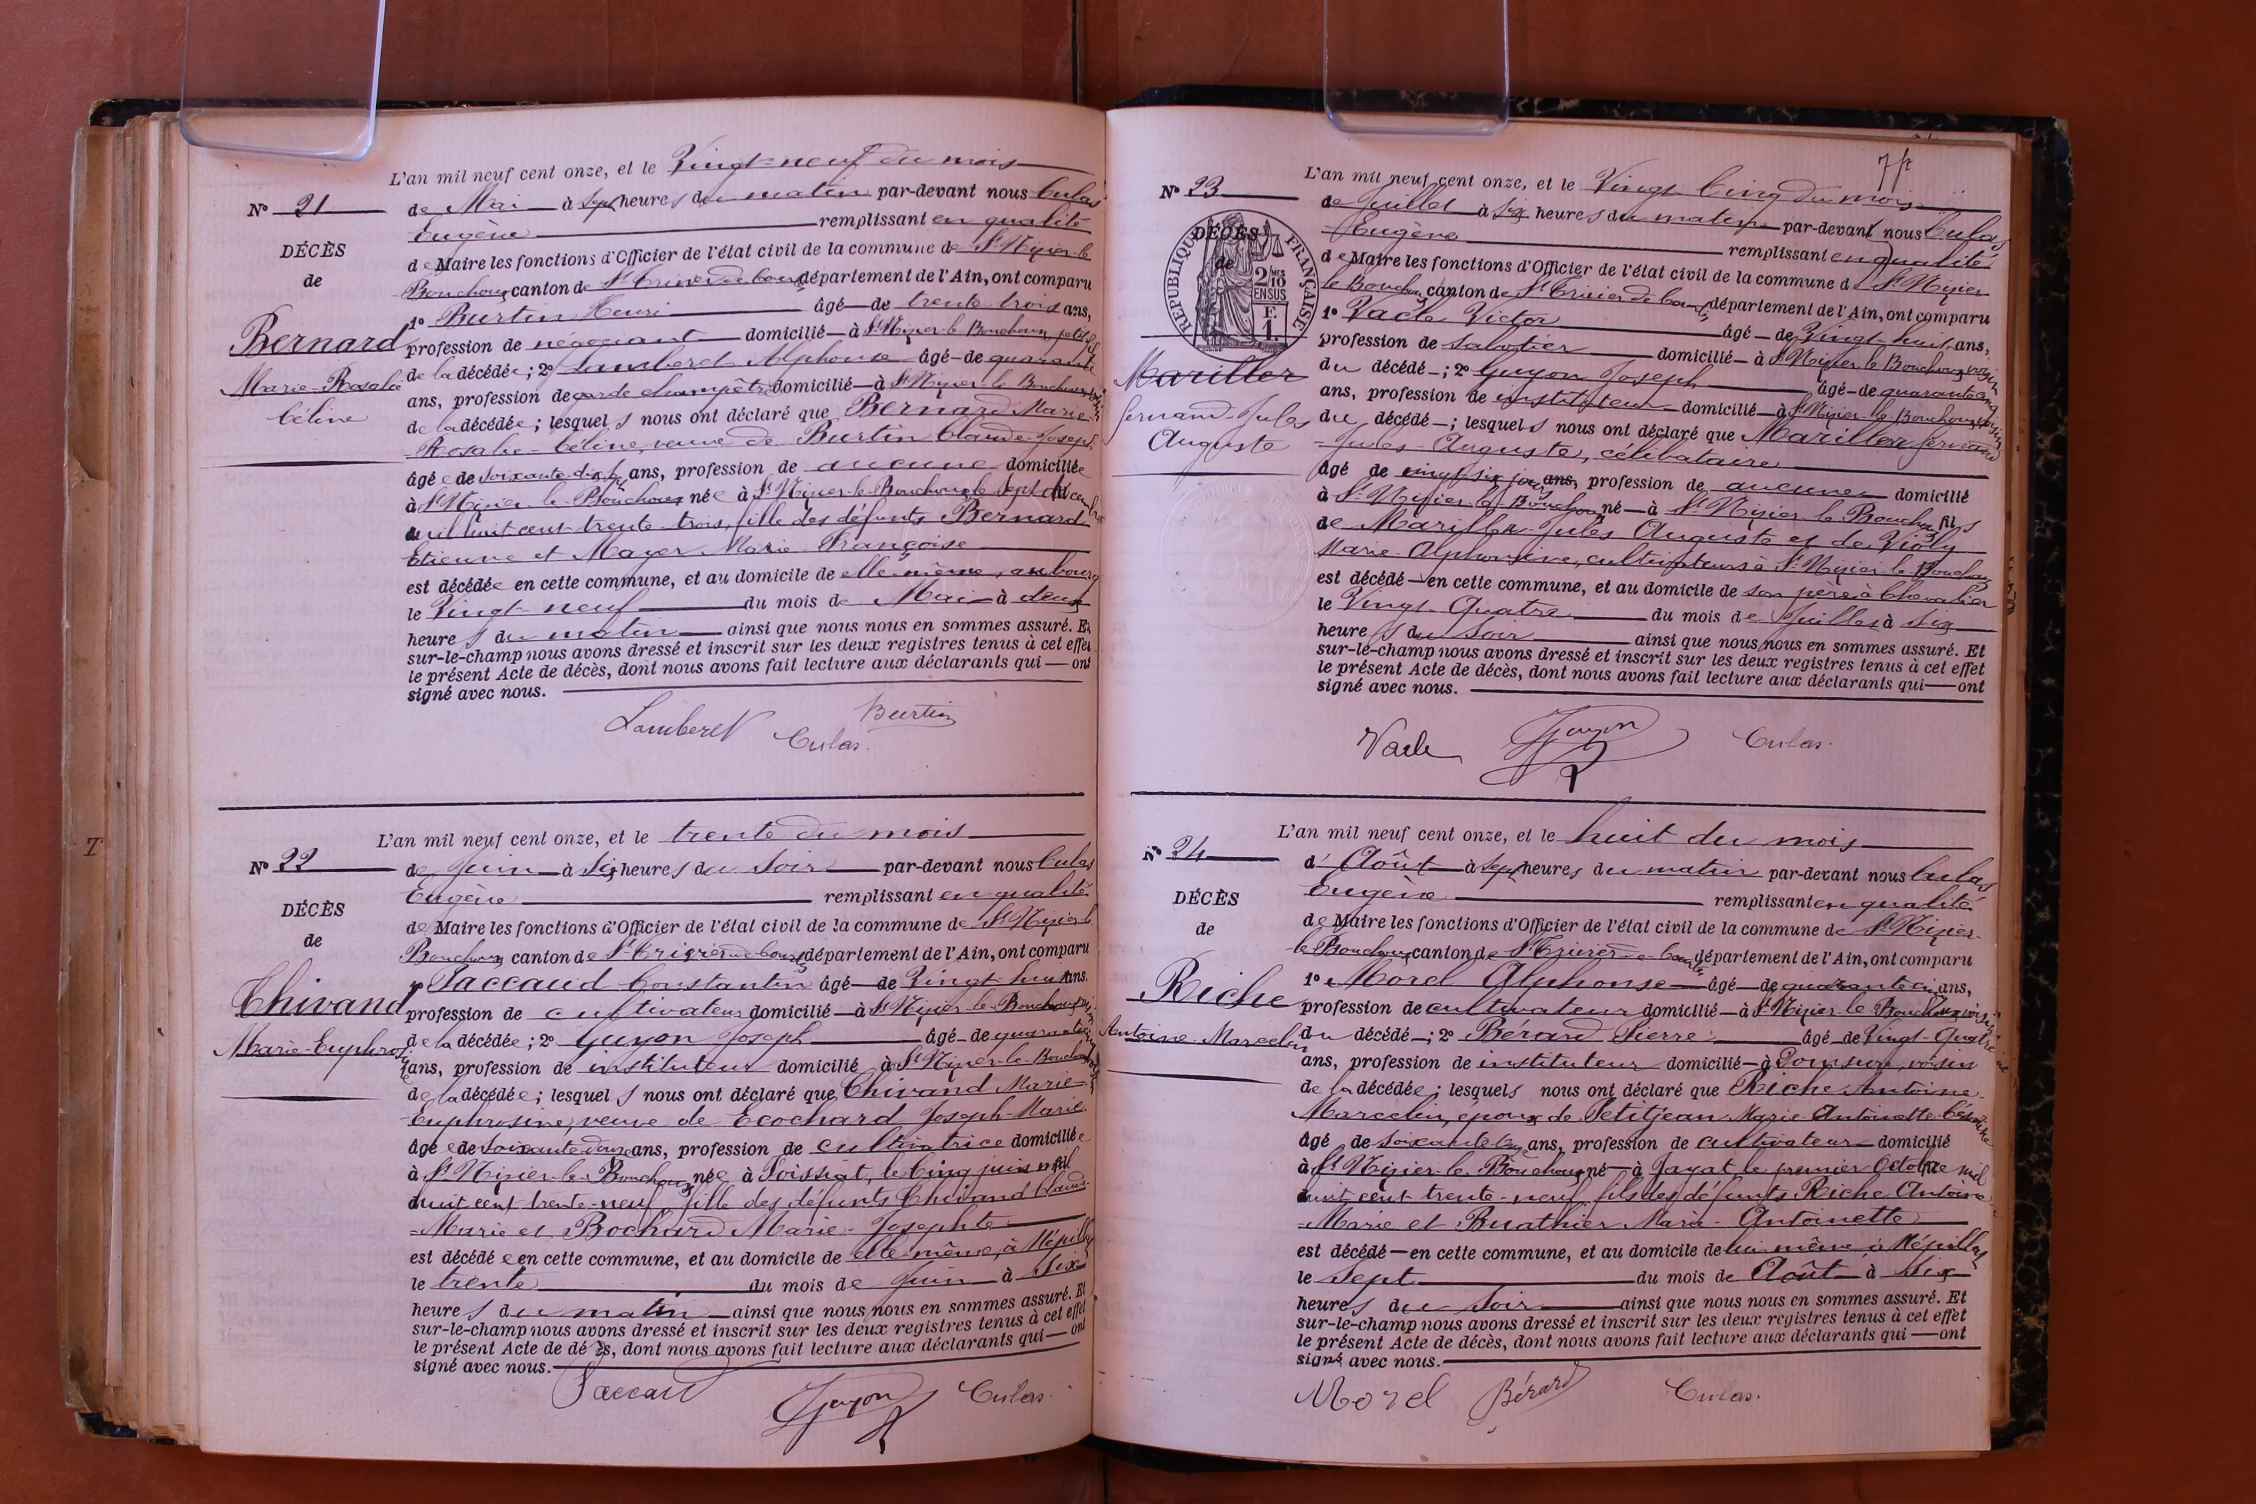 L'an mil neuf cent onze, et le Vingt-neuf du mois
N° 21
de Mai à sept heures du matin par-devant nous Culas
Eugène remplissant en qualité
DÉCÈS
de Maire les fonctions d'Officier de l'état civil de la commune de St Nizier-le
de
Bouchoux canton de St Trivier de Courtes département de l'Ain, ont comparu
1° Burtin Henri âgé de trente trois ans,
Bernard
profession de négociant domicilié à St Nizier le Bouchoux, petit fils
Marie-Rosalie
de la décédée; 2° Lamberet Alphonse âgé de quarante
ans, profession de garde champêtre domicilié à St Nizier le Bouchoux voisin
Céline
de la décédée; lesquels nous ont déclaré que Bernard Marie
Rosalie-Céline, veuve de Burtin Claude-Joseph
âgée de soixante dix sept ans, profession de aucune domiciliée
à St Nizier le Bouchoux née à St Nizier-le-Bouchoux le sept
mil huit cent trente trois, fille des défunts Bernard
Etienne et Mayer Marie Françoise
est décédée en cette commune, et au domicile de elle même, au bourg
le Vingt-neuf du mois de Mai à deux
heures du matin ainsi que nous nous en sommes assuré. Et
sur-le-champ nous avons dressé et inscrit sur les deux registres tenus à cet effet
le présent Acte de décès, dont nous avons fait lecture aux déclarants qui ont
signé avec nous.
Lamberet Culas. Burtin
L'an mil neuf cent onze, et le trente du mois
N° 22
de Juin à Six heures du Soir par-devant nous Culas
Eugène remplissant en qualité
DÉCÈS
de Maire les fonctions d'Officier de l'état civil de la commune de St Nizier-le
de
Bouchoux canton de St Trivier de Courtes département de l'Ain, ont comparu
1° Paccaud Constantin âgé de Vingt-huit ans.
Chivand
profession de cultivateur domicilié à St Nizier-le-Bouchoux voisin
Marie-Euphrosine
de la décédée; 2° Guyon Joseph âgé de quarante cinq
ans, profession de instituteur domicilié à St Nizier-le-Bouchoux
de la décédée; lesquels nous ont déclaré que Chivand Marie
Euphrosine, veuve de Ecochard Joseph-Marie
âgée de soixante douze ans, profession de cultivatrice domiciliée
à St Nizier-le-Bouchoux née à Foissiat, le Cinq juin mil
huit cent trente-neuf, fille des défunts Chivand Claude
-Marie et Bochard Marie-Josephte
est décédée en cette commune, et au domicile de elle même, à Népillay
le trente du mois de Juin à Six
heures du matin ainsi que nous nous en sommes assuré. Et
sur-le-champ nous avons dressé et inscrit sur les deux registres tenus à cet effet
le présent Acte de décès, dont nous avons fait lecture aux déclarants qui ont
signé avec nous.
Paccaud Guyon Culas.
L'an mil neuf cent onze, et le Vingt-Cinq du mois
N° 23
de Juillet à six heures du matin par-devant nous Culas
Eugène remplissant en qualité
DÉCÈS
de
RÉPUBLIQUE FRANÇAISE
2/10 EN SUS
F. 1.
de Maire les fonctions d'Officier de l'état civil de la commune de St Nizier
le Bouchoux canton de St Trivier de Courtes département de l'Ain, ont comparu
1° Vacle Victor âgé de Vingt-huit ans,
profession de sabotier domicilié à St Nizier le Bouchoux voisin
Mariller
du décédé; 2° Guyon Joseph âgé de quarante cinq
Fernand-Jules
ans, profession de instituteur domicilié à St Nizier le Bouchoux voisin
Auguste
du décédé; lesquels nous ont déclaré que Mariller Fernand
-Jules-Auguste, célibataire
âgé de vingt-six jours ans, profession de aucune domicilié
à St Nizier le Bouchoux né à St Nizier le Bouchoux fils
de Mariller Jules Auguste et de Violy
Marie-Alphonsine, cultivateurs à St Nizier le Bouchoux
est décédé en cette commune, et au domicile de son père à Chevalier
le Vingt-Quatre du mois de Juillet à Six
heures du Soir ainsi que nous nous en sommes assuré. Et
sur-le-champ nous avons dressé et inscrit sur les deux registres tenus à cet effet
le présent Acte de décès, dont nous avons fait lecture aux déclarants qui ont
signé avec nous.
Vacle Guyon Culas.
L'an mil neuf cent onze, et le huit du mois
N° 24
d'Août à sept heures du matin par-devant nous Culas
Eugène remplissant en qualité
DÉCÈS
de Maire les fonctions d'Officier de l'état civil de la commune de St Nizier-
de
le Bouchoux canton de St Trivier de Courtes département de l'Ain, ont comparu
1° Morel Alphonse âgé de quarante cinq ans,
Riche
profession de cultivateur domicilié à St Nizier le Bouchoux voisin
Antoine-Marcelin
du décédé; 2° Bérard Pierre âgé de Vingt-Quatre
ans, profession de instituteur domicilié à Domsure, voisin
de la décédée; lesquels nous ont déclaré que Riche Antoine
Marcelin, époux de Petitjean Marie Antoinette
âgé de soixante ans, profession de cultivateur domicilié
à St Nizier-le-Bouchoux né à Jayat le premier Octobre mil
huit cent trente-neuf fils des défunts Riche Antoine
-Marie et Buathier Marie-Antoinette
est décédé en cette commune, et au domicile de lui même à Népillay
le sept du mois de Août à Six
heures du Soir ainsi que nous nous en sommes assuré. Et
sur-le-champ nous avons dressé et inscrit sur les deux registres tenus à cet effet
le présent Acte de décès, dont nous avons fait lecture aux déclarants qui ont
signé avec nous.
Morel Bérard Culas.